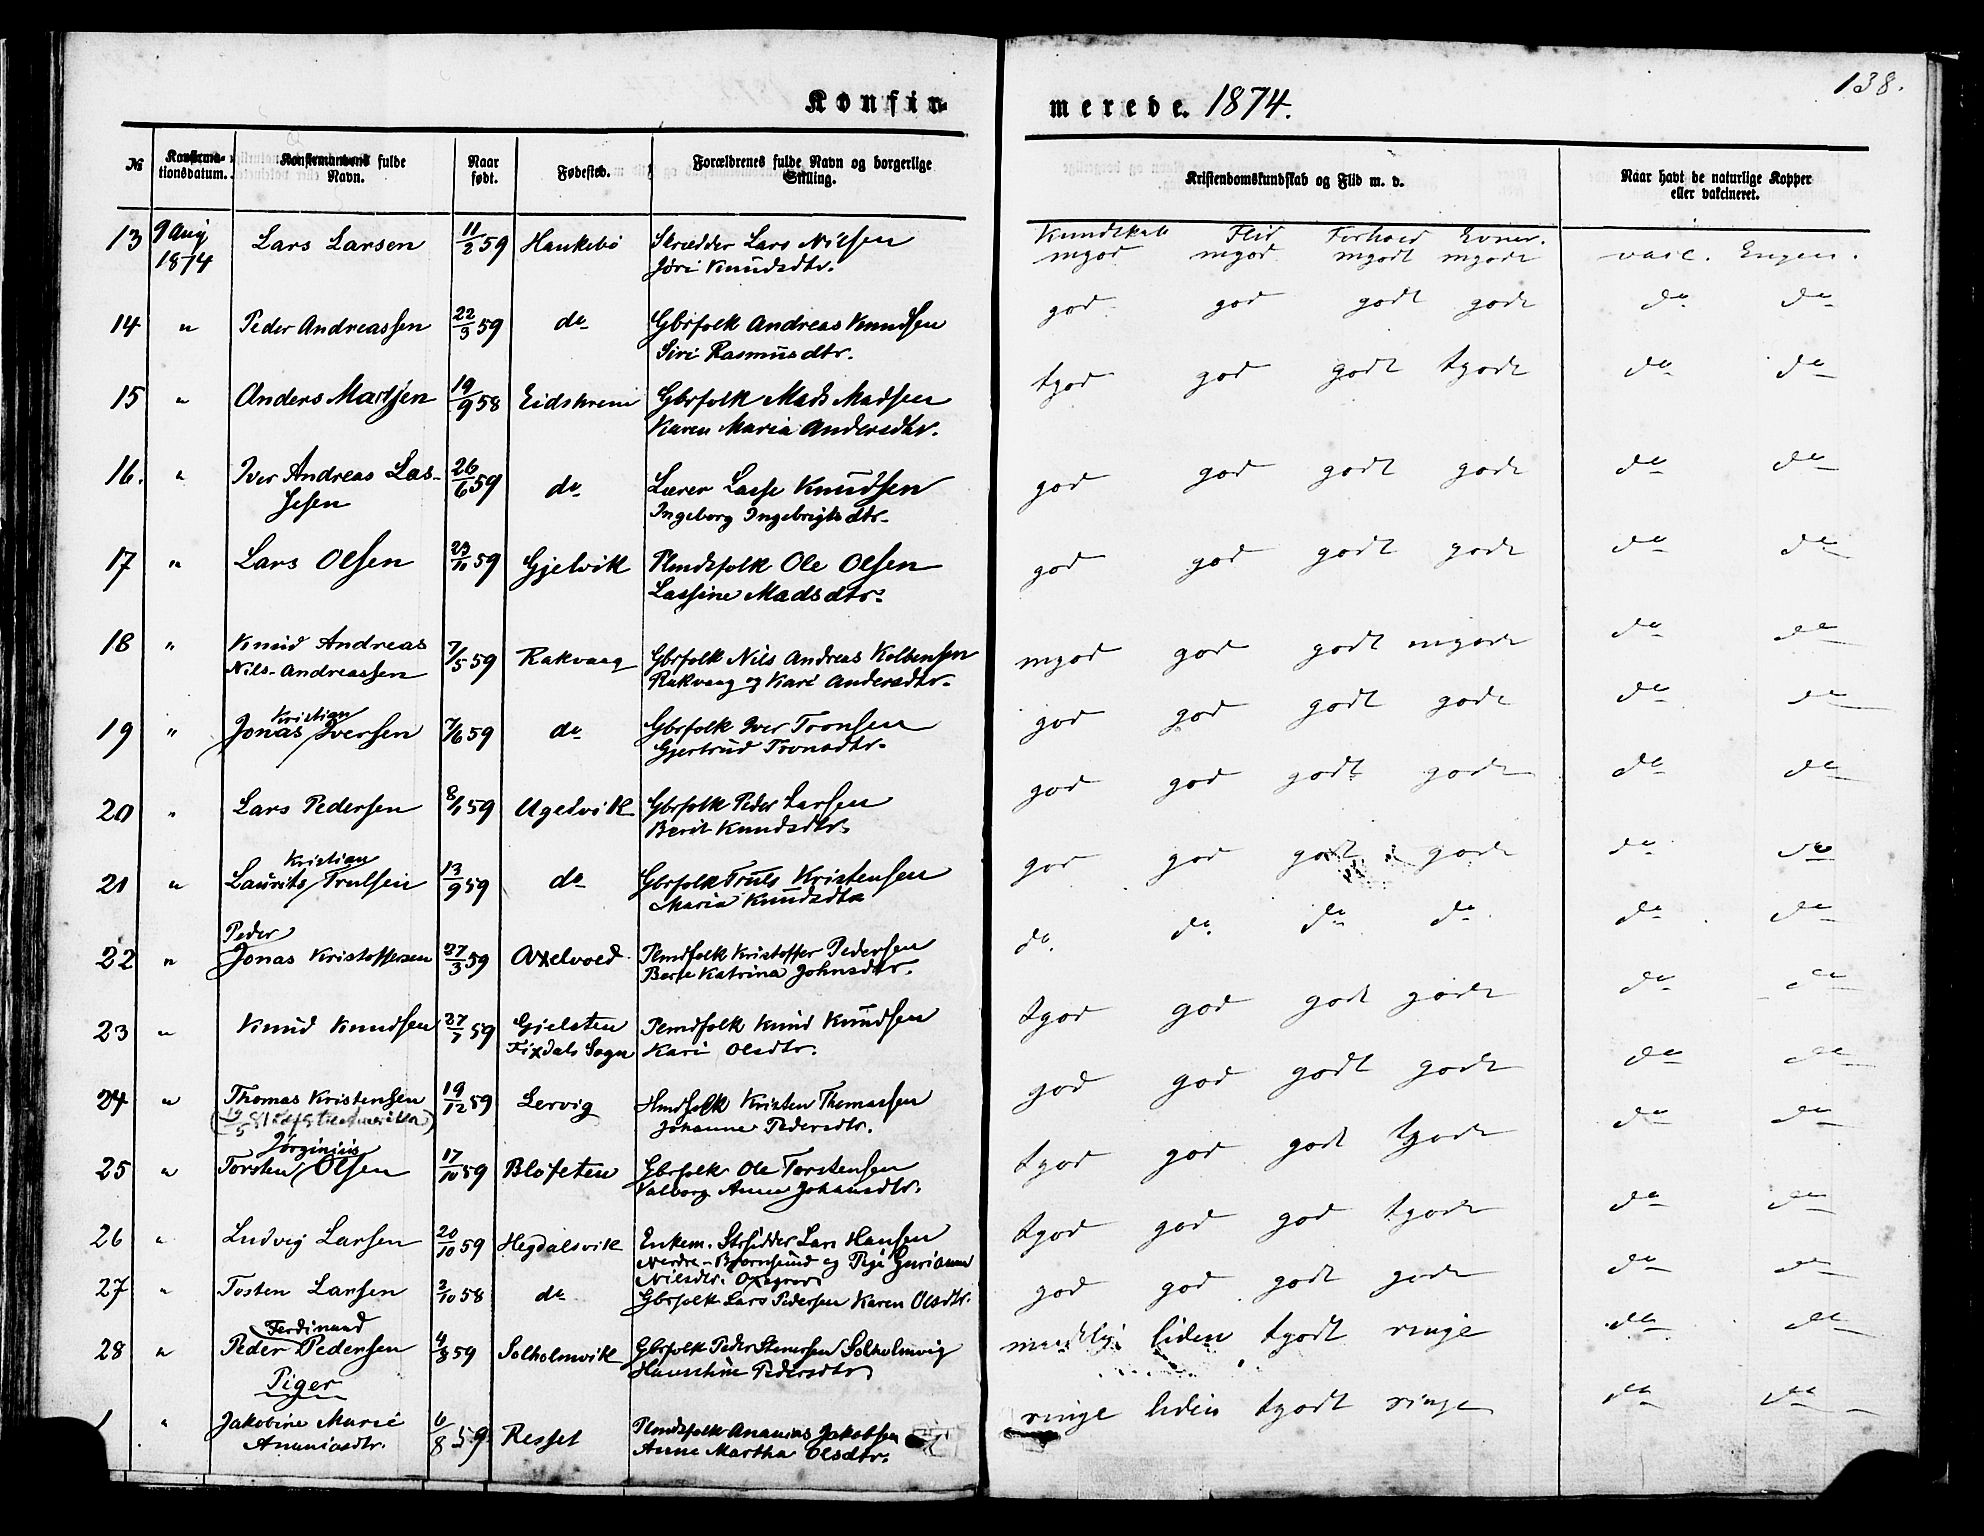 138.
Konfir-
merede. 1874.
№
Konfirma-
tionsdatum.
Konfirmandens fulde
Navn.
Naar
født.
Fødested.
Forældrenes fulde Navn og borgerlige
Stilling.
Kristendomskundskab og Flid m. v.
Naar havt de naturlige Kopper
eller vakcineret.
Kundskab Flid Forhold Evner.
13 9 Aug 1874 Lars Larsen 11/2 59 Haukebø Skrædder Lars Nilsen
Jøri Knudsdtr.
mgod mgod mgodt mgodt vacc. Engen.
14 " Peder Andreassen 22/3 59 do Gbrfolk Andreas Knudsen
Siri Rasmusdtr.
god god godt godt do do
15 " Anders Madsen 19/9 58 Eidskrem Gbrfolk Mads Madsen
Karen Maria Andersdtr.
tgod god godt tgodt do do
16. " Iver Andreas Las-
sesen 26/6 59 do Lærer Lasse Knudsen
Ingeborg Ingebrigtsdtr.
god god godt godt do do
17 " Lars Olsen 23/10 59 Gjelvik Plmdsfolk Ole Olsen
Lassine Madsdtr.
god god godt godt do do
18 " Knud Andreas
Nils-Andreassen 7/5 59 Rakvaag Gbrfolk Nils Andreas Kolbensen
Rakvaag og Kari Andersdtr.
mgod god godt mgodt do do
19 " Kristian
Jonas Iversen 7/6 59 do Gbrfolk Iver Tronsen
Gjertrud Tronsdtr.
god god godt godt do do
20 " Lars Pedersen 8/1 59 Ugelvik Gbrfolk Peder Larsen
Berit Knudsdtr.
god god godt godt do do
21 " Kristian
Laurits Trulsen 13/9 59 do Gbrfolk Truls Kristensen
Maria Knudsdtr
god god godt godt do do
22 " Peder
Jonas Kristoffersen 27/3 59 Oxelvold Plmdfolk Kristoffer Pedersen
Berte Katrina Johnsdtr.
do do do do do do
23 " Knud Knudsen 27/7 59 Gjelsten
Fixdals Sogn Plmdfolk Knud Knudsen
Kari Olsdtr.
tgod god godt godt do do
24 " Thomas Kristensen 19/12 59 Lervig Hmdfolk Kristen Thomassen
Johanne Pedersdtr.
god god godt godt do do
25 " Jørginius
Torsten Olsen 17/10 59 Blofeten Gbrfolk Ole Torstensen
Valborg Anne Johansdtr.
tgod god godt tgodt do do
26 " Ludvig Larsen 20/10 59 Hegdalsvik Enkem. Lars Hansen
Nordre-Bjørnsund og Pige
Nilsdtr.
tgod god god tgodt do do
27 " Tosten Larsen 2/10 58 do Gbrfolk Lars Pedersen Karen Olsdtr.
god god godt godt do do
28 " Ferdinand
Peder Pedersen 4/8 59 Solholmvik Gbrfolk Peder Stenersen Solholmvig
Pedersdtr.
liden tgodt ringe do do
Piger
1 " Jakobine Marie
Ananiasdtr. 6/8 59 Resset Plmdsfolk Ananias Jakobsen
Anne Martha Olsdtr.
ringe liden tgodt ringe do do